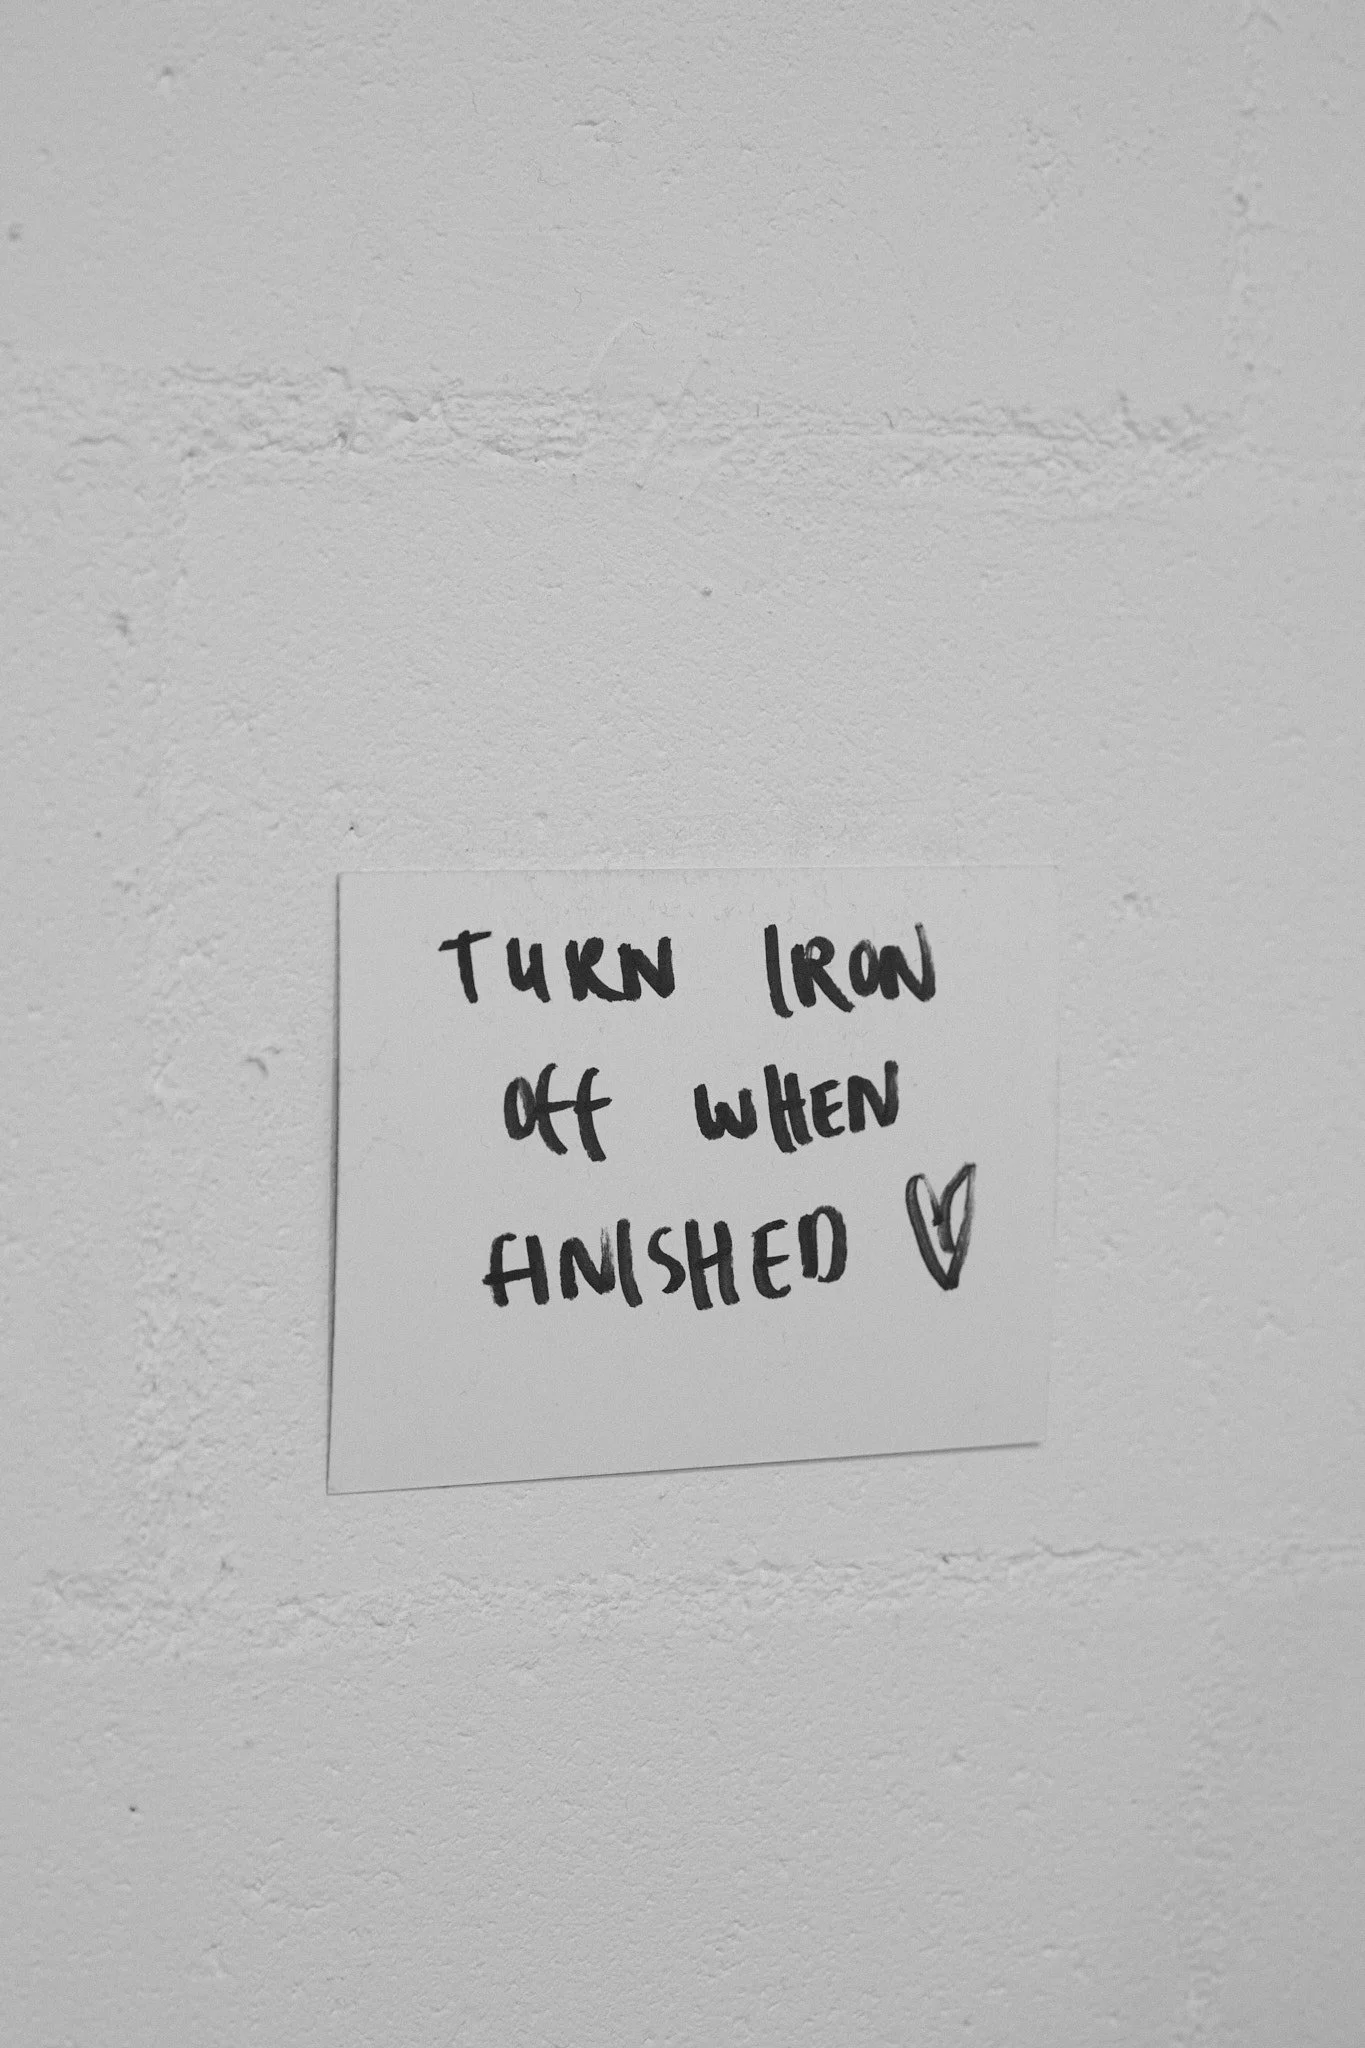 TURN IRON
OFF WHEN
FINISHED ♡